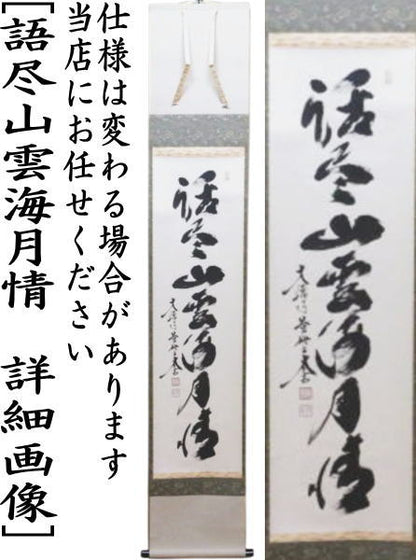 仕様は変わる場合があります
当店にお任せください
[語尽山雲海月情 詳細画像]
話尽山雲海月情
話尽山雲海月情